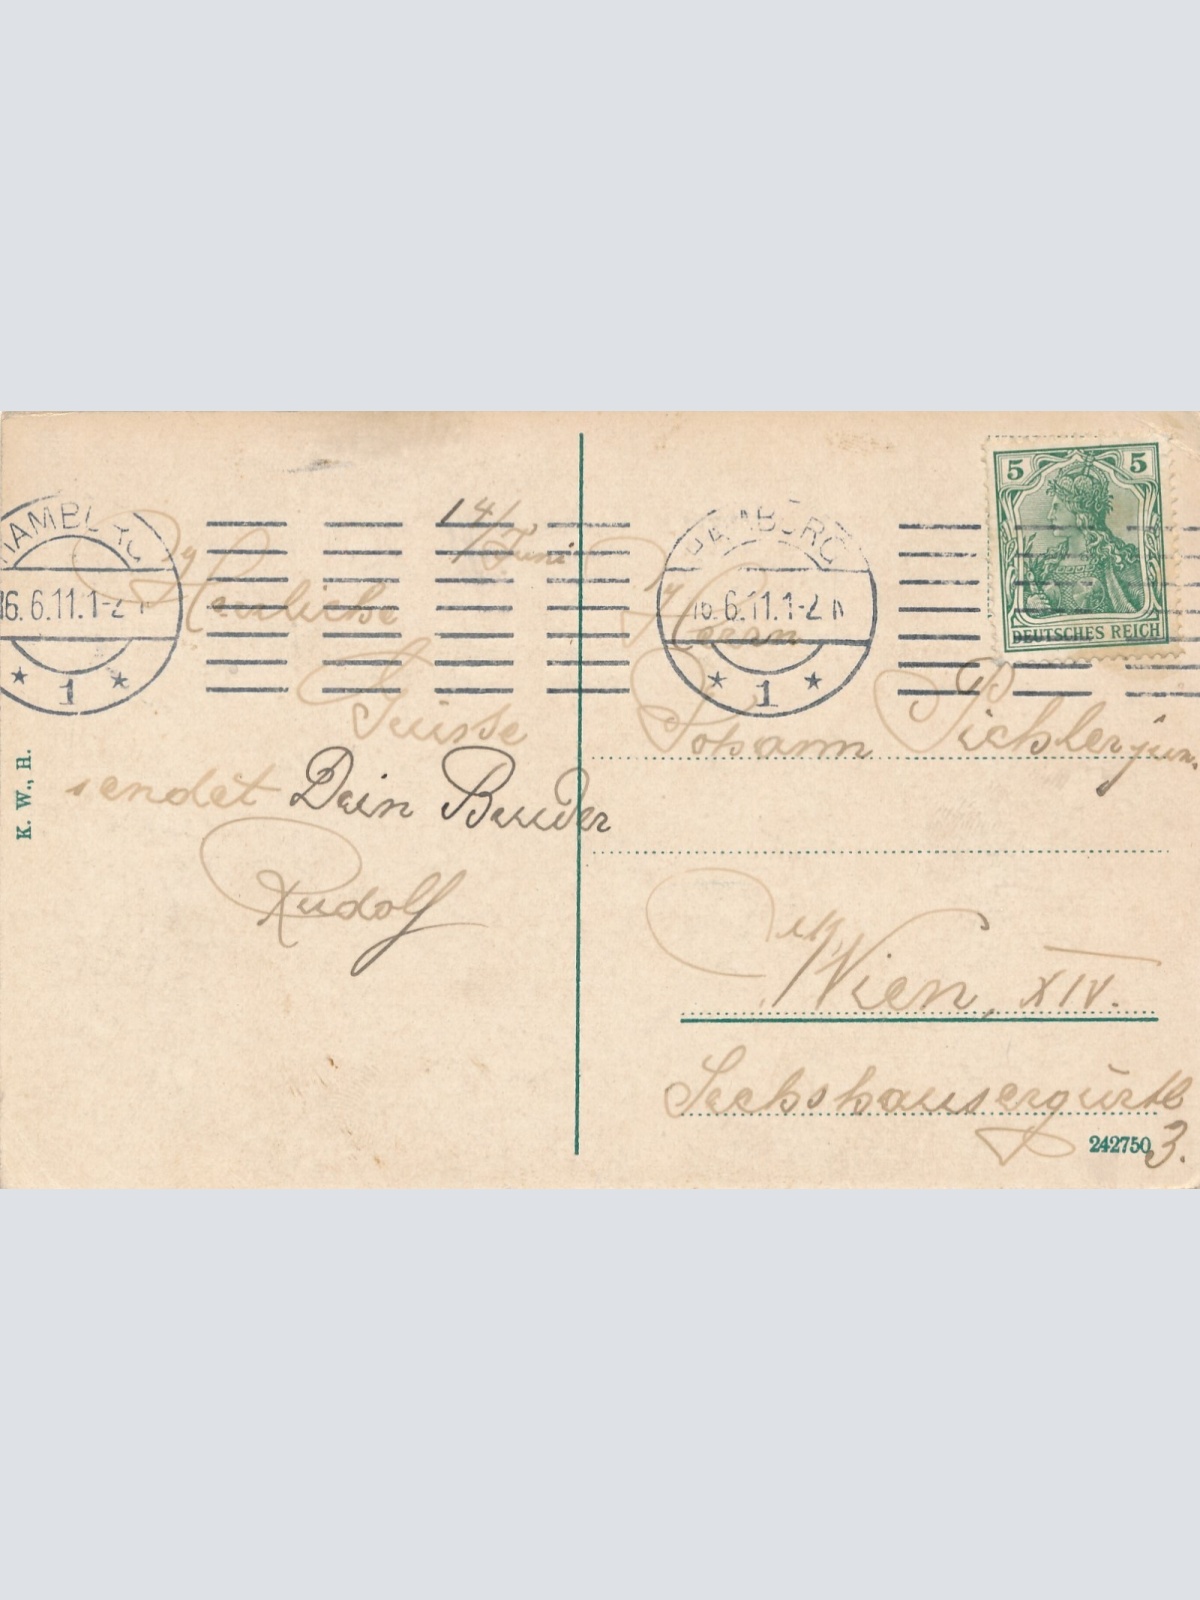 HAMBURG
16.6.11.1-2 N
1
14/Juni
Herzliche
Grüsse
sendet Dein Bruder
Rudolf
K. W., H.
HAMBURG
16.6.11.1-2 N
1
5 5
DEUTSCHES REICH
Herrn
Johann Pichler jun.
Wien, XIV.
Sechshausergürtl
242750
3.